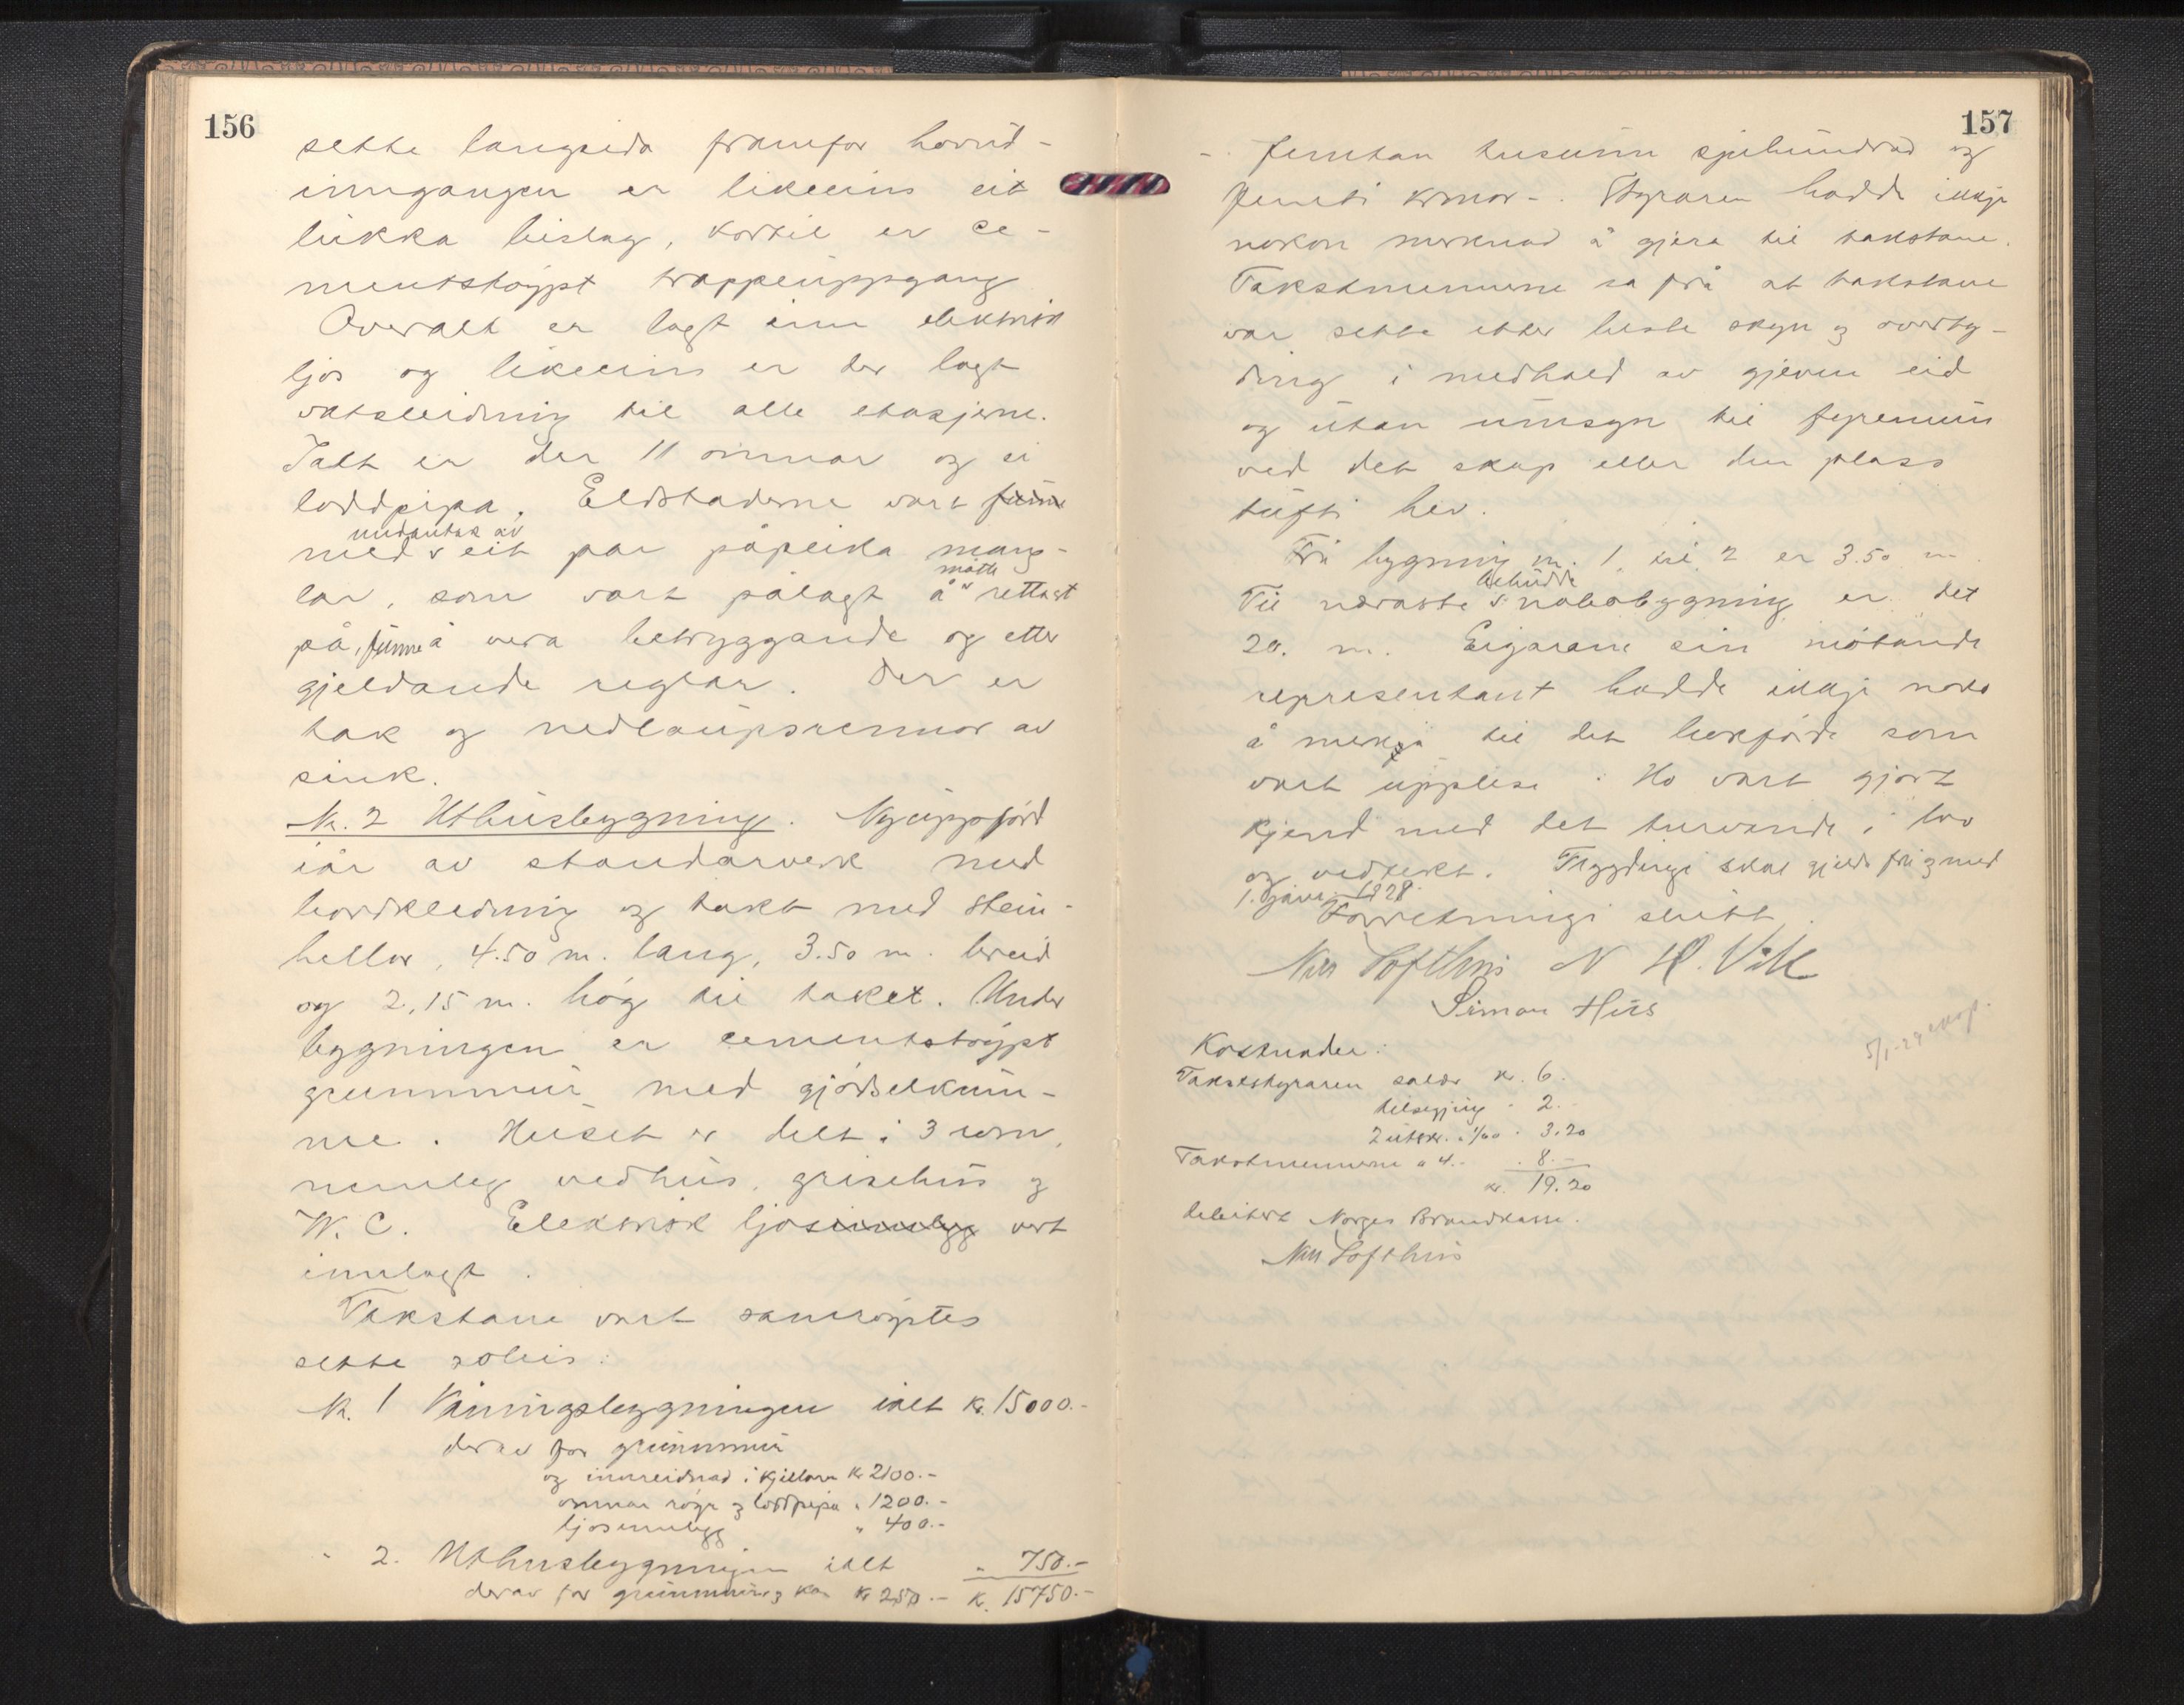 156
sette langsida framfor hovud-
inngangen er likeeins eit
lukka bislag, kortil er ce-
mentstøypt trappeuppgang
Overalt er lagt inn elektrisk
ljos og likeeins er der lagt
vatsleidning til alle etasjerne.
Ialt er der 11 omnar og ei
loddpipa. Eldstaderne vart funne
undantak av
med eit par påpeika mang-
måtte
lar, som vart pålagt å rettast
på, funne å vera betryggande og etter
gjeldande reglar. Der er
tak og nedlaupsrennor av
sink.
Nr. 2 Uthusbygning. Nyuppførd
iår av standarverk med
bordkledning og takt med stein-
hellor, 4.50 m. lang, 3.50 m. breid
og 2,15 m. høg til taket. Under
bygningen er cementstøypt
grunnmur med gjødselkum-
me. Huset er delt i 3 rom,
nemleg vedhus, grisehus og
W. C. Elektrisk ljosinnlegg vert
innlagt.
Takstane vart samrøystes
sette soleis:
Nr. 1 Våningsbygningen ialt Kr. 15000.-
derav for grunnmur
og innreidnad i kjellarn Kr 2100.-
omnar røyr og loddpipa " 1200.-
ljosinnlegg " 400.-
" 2. Uthusbygningen ialt " 750.-
derav for grunnmur og kum Kr 250.- Kr. 15750.-
157
- Femtan tusunn sjuhundrad og
femti kronor -. Styraren hadde ikkje
nokon merknad å gjera til takstane.
Takstmennene sa frå at takstane
var sette etter beste skyn og overty-
ding i medhald av gjeven eid
og utan umsyn til fyremun
ved det skap eller den plass
tufti hev.
Frå bygning nr. 1 til 2 er 3.50 m
bebudde
Til næraste nabobygning er det
20. m. Eigarane sin møtande
representant hadde ikkje noko
å merkja til det bokførde som
vart upplese. Ho vart gjort
kjend med det turvande i lov
og vedtekt. Tryggingi skal gjelde frå og med
1. januar 1928.
Forretningi slutt.
Nils Tofthus N H. Vik
Simon Hus
5/1-29 eksp.
Kostnader:
Takststyraren salær kr. 6.
tilsegjing " 2.-
2 utskr. a 1/60 " 3.20
Takstmennene a 4.- " 8.-
kr. 19.20
debitert Norges Brandkasse.
Nils Tofthus